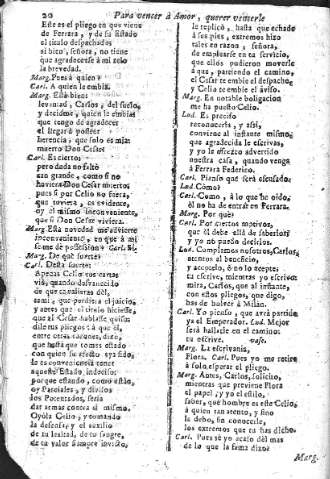 20 Para vencer à Amor, querer vencerle
Este es el pliego en que viene
de Ferrara, y de su Estado
el titulo despachado:
si bien, señora, no tiene
que agradecerse à mi zelo
la brevedad.
Marg. Pues à quien?
Carl. A quien le embia.
Marg.
levantad, Carlos, del suelo,
y decidme, quien le embia?
que tengo de agradecer
el llegar à posseer
herencia, que solo es mia
muerto Don Cesar
Carl. Es cierto:
pero dada no està
tan grande, como si no
huviera Don Cesar muerto:
pues si por Celio no fuera,
que tuviera, es evidente,
oy el mismo inconveniente,
que si Don Cesar viviera.
Marg. Essa novedad me advierte
inconveniente, en que à mi
se me dè possession?
Carl. Si.
Marg. De què suerte?
Carl. Desta suerte:
Apenas Celio
viò, quando
de que
que perdiera el juicio,
y antes que el titulo hiciesse,
que al Cesar hablasse quiso:
dile tus pliegos: à que èl,
entre otras razones, dixo,
que hasta que tomes estado
con quien su afecto aya sido,
no es conveniente tener
aqueste Estado, indeciso:
porque estando, como està,
en Parciales, y divisos
los Potentados, seria
dar armas contra sì mismo.
Oyòla Celio, y tomando
la defensa, y el auxilio
de tu lealtad, de tu sangre,
de tu valor siempre invicto,
le replicò, hasta que echado
à sus pies, extremos hizo
tales en razon, señora,
de emplearse en tu servicio,
que ellos pudieron moverle
à que, partiendo el camino,
el Cesar te embie el despacho,
y Celio te embie el aviso.
Marg. En notable obligacion
me ha puesto Celio.
Lud. Es preciso
reconocerla, y assi,
conviene al instante mismo,
que agradecida le escrivas,
y yo le ofrezco advertido
nuestra casa, quando venga
à Ferrara Federico.
Carl. Pienso que serà escusado.
Lud. Còmo?
Carl. Como, à lo que he oìdo,
èl no ha de entrar en Ferrara.
Marg. Por què?
Carl. Por ciertos motivos,
que èl debe està de saberlos,
y yo no puedo decirlos.
Lud. Cumplamos nosotros, Carlos,
atentos al beneficio,
y acepcelo, si no lo acepte:
tu escrive, mientras yo escrivo:
mira, Carlos, que al instante,
con estos pliegos, que digo,
has de bolver à Milàn.
Carl. Yo pienso, que avrà partido
ya el Emperador. Lud. Mejor
serà hallarle en el camino:
tu escrive. vase.
Marg. La escrivania,
Flora. Carl. Pues yo me retiro
à solo esperar el pliego.
Marg. Antes, Carlos, solicito,
mientras que previene Flora
el papel, y yo el estilo,
saber, què hombre es este Celio,
à quien tan atento, y fino
la debo, sin conocerle,
los extremos que tu has dicho.
Carl. Pues sè yo acaso dèl mas
de lo que la fama dixo?
Marg.